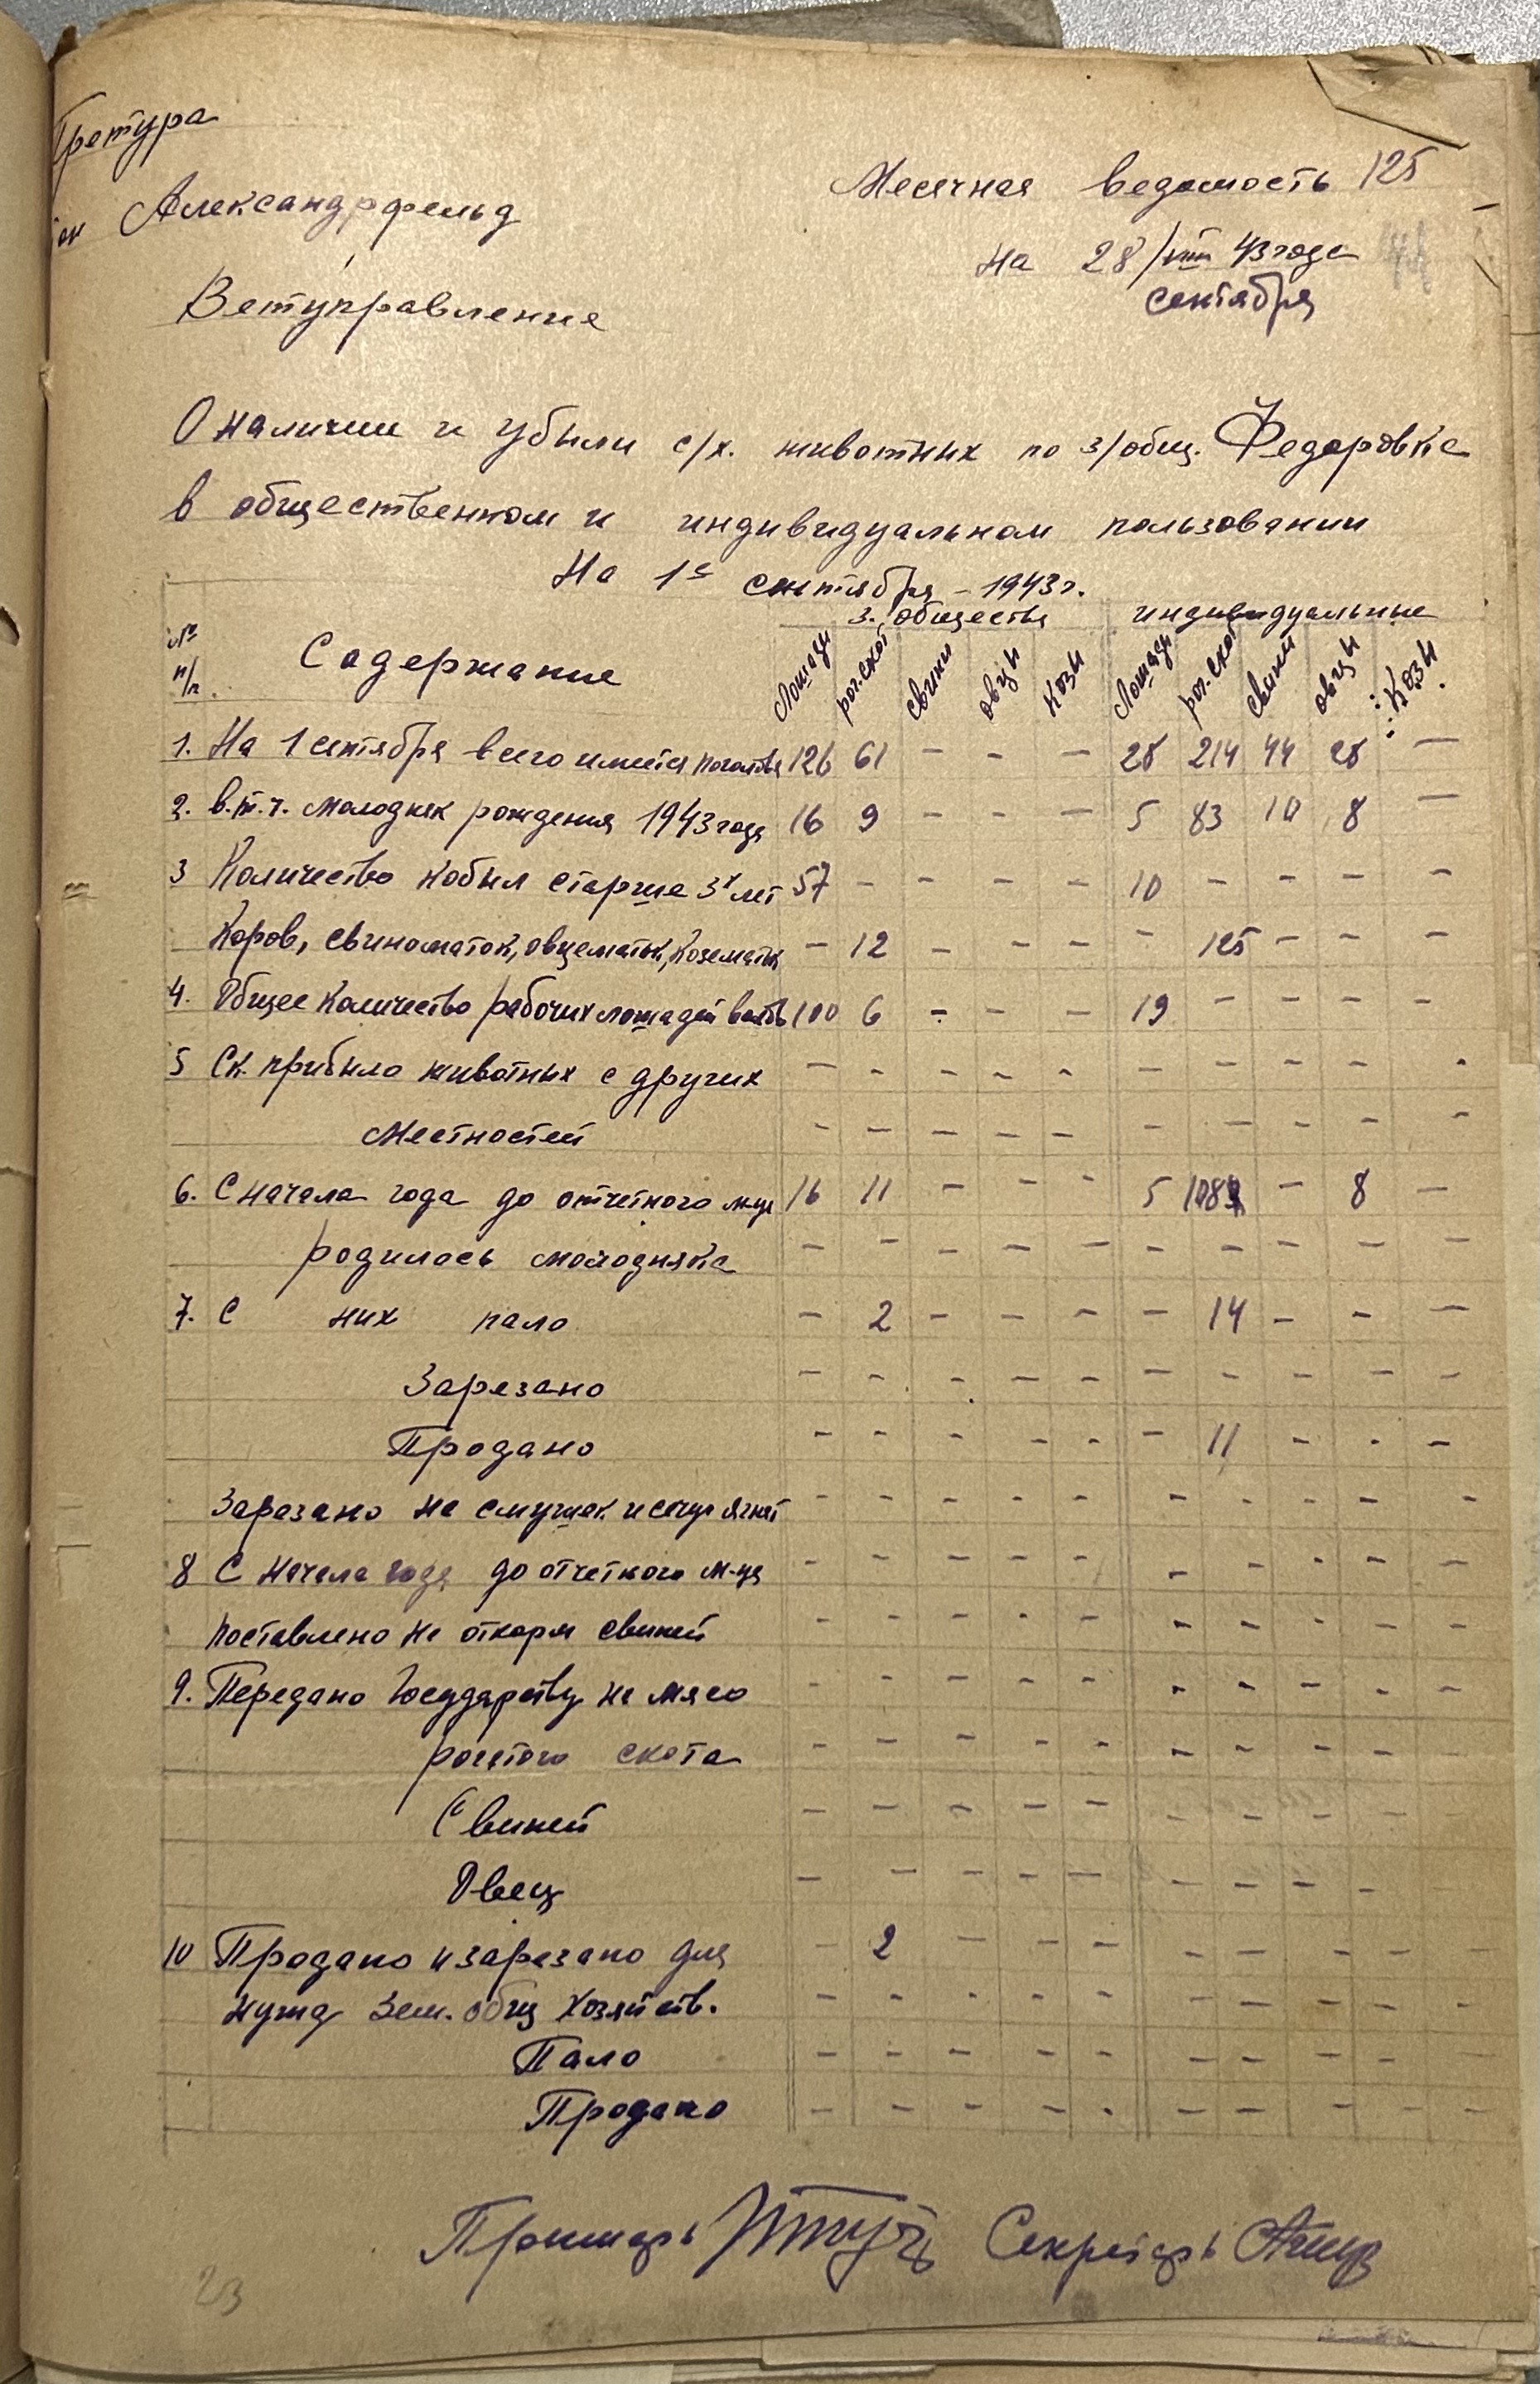 Претура
Александрфельд
Месячная ведомость 125
на 28/VIII 43 года
сентября
Ветуправление
О наличии и убыли с/х. животных по з/общ. Федоровка
в общественном и индивидуальном пользовании
На 1е сентября - 1943 г.
з. общества индивидуальные
№ п/п. Содержание Лошади рог.скот свиньи овцы козы Лошади рог.скот свиньи овцы козы
1. На 1 сентября всего имеется поголовья 126 61 - - - 28 214 44 28 -
2. в.т.ч. молодняк рождения 1943 года 16 9 - - - 5 83 10 8 -
3 Количество кобыл старше 3х лет 57 - - - - 10 - - - -
Коров, свиноматок, овцематок, козематок - 12 - - - - 125 - - -
4. Общее количество рабочих лошадей волов 100 6 - - - 19 - - - -
5 Ск. прибыло животных с других - - - - - - - - - -
местностей - - - - - - - - - -
6. С начала года до отчетного м-ца 16 11 - - - 5 108 - 8 -
родилось молодняка - - - - - - - - - -
7. С них пало - 2 - - - - 14 - - -
Зарезано - - - - - - - - - -
Продано - - - - - - 11 - - -
Зарезано на смушек ягнят - - - - - - - - - -
8 С начала года до отчетного м-ца - - - - - - - - - -
поставлено на откорм свиней - - - - - - - - - -
9. Передано Государству на мясо - - - - - - - - - -
рогатого скота - - - - - - - - - -
Свиней - - - - - - - - - -
Овец - - - - - - - - - -
10 Продано и зарезано для - 2 - - - - - - - -
нужд Зем. общ хозяйств. - - - - - - - - - -
Пало - - - - - - - - - -
Продано - - - - - - - - - -
Примарь Секретарь
23